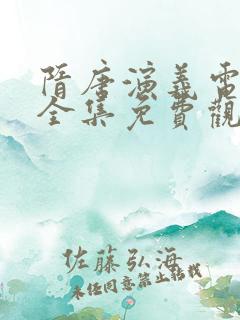 隋唐演義電
全集免費觀
佐藤弘海
未任同意禁止转载